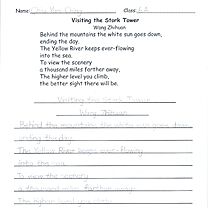 Name: Class: 6A
Visiting the Stork Tower
Wang Zhihuan
Behind the mountains the sun goes down,
ending the day.
The Yellow River keeps ever-flowing
into the sea.
To view the scenery
a thousand miles farther away,
The higher level you climb,
the better sight there will be.
Visiting the Stork Tower
Wang Zhihuan
Behind the mountains the sun goes down
ending the day.
The Yellow River keeps ever-flowing
into the sea.
To view the scenery
a thousand miles farther away
The higher level you climb,